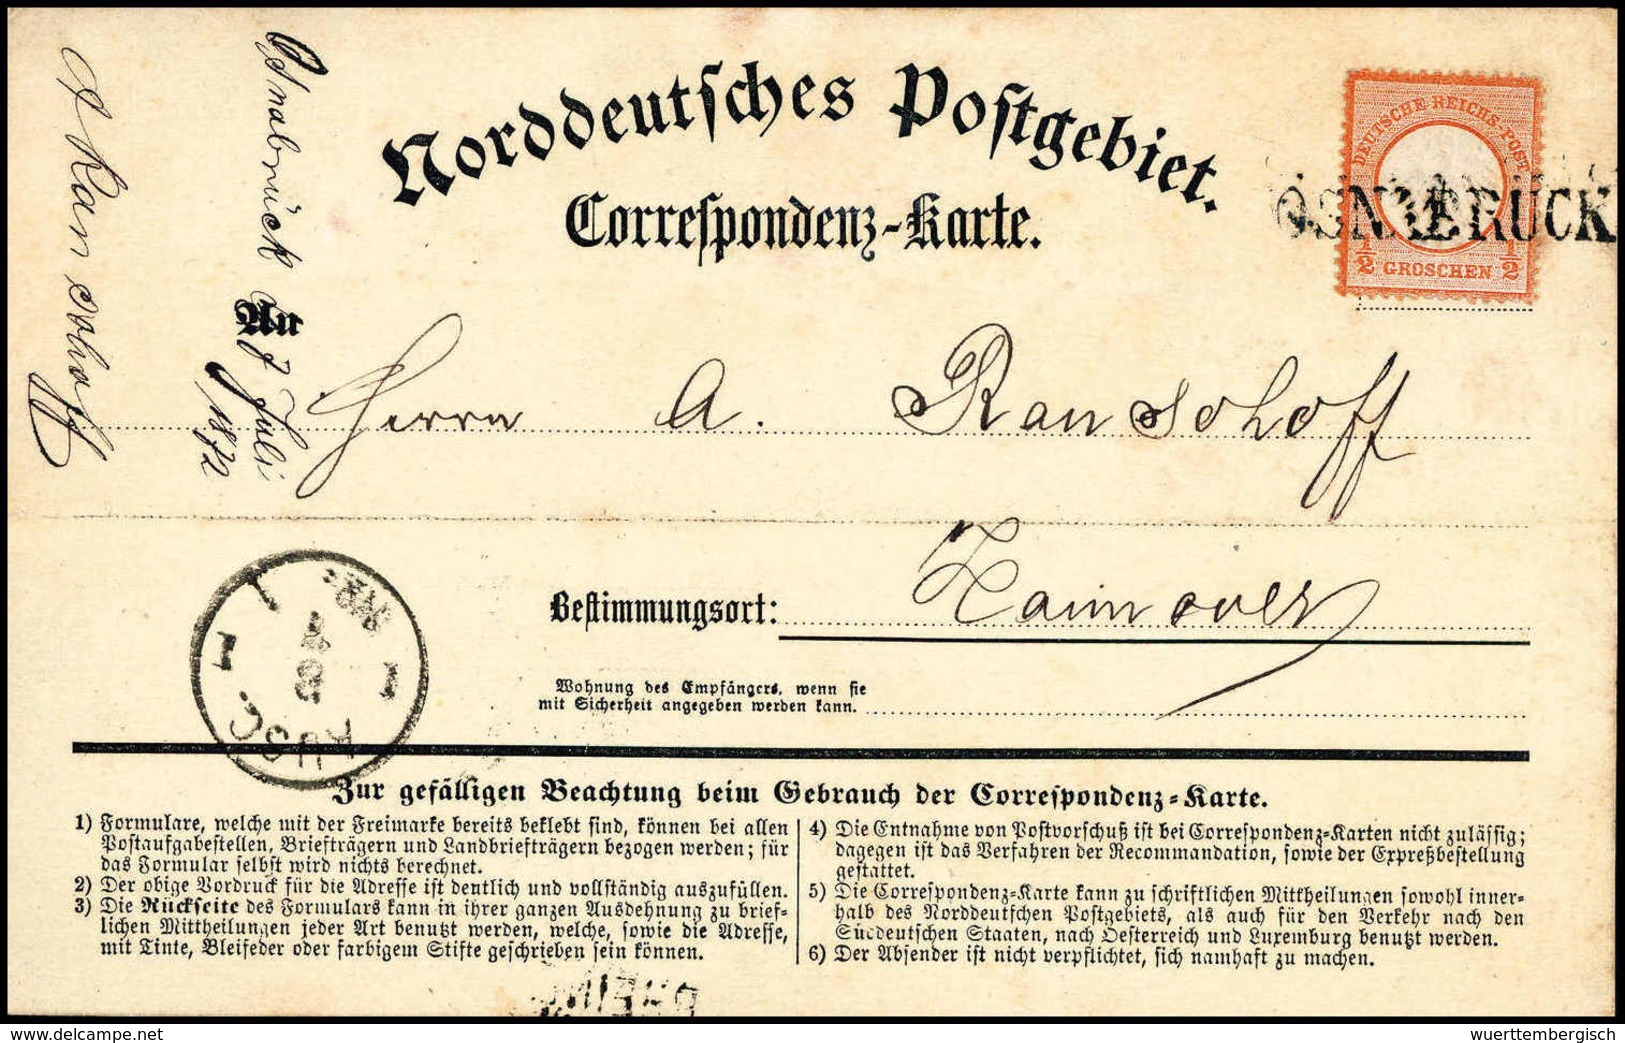 Norddeutsches Postgebiet.
Correspondenz-Karte.
DEUTSCHE REICHS-POST
1/2 GROSCHEN 1/2
OSNABRÜCK
Osnabrück d 7 Juli
1872
A Ransohoff
An
Herrn A. Ransohoff
Bestimmungsort: Hannover
Wohnung des Empfängers, wenn sie
mit Sicherheit angegeben werden kann.
AUSG.
8
7
N2.
1
I
Zur gefälligen Beachtung beim Gebrauch der Correspondenz-Karte.
1) Formulare, welche mit der Freimarke bereits beklebt sind, können bei allen
Postaufgabestellen, Briefträgern und Landbriefträgern bezogen werden; für
das Formular selbst wird nichts berechnet.
2) Der obige Vordruck für die Adresse ist deutlich und vollständig auszufüllen.
3) Die Rückseite des Formulars kann in ihrer ganzen Ausdehnung zu brief-
lichen Mittheilungen jeder Art benutzt werden, welche, sowie die Adresse,
mit Tinte, Bleifeder oder farbigem Stifte geschrieben sein können.
4) Die Entnahme von Postvorschuß ist bei Correspondenz-Karten nicht zulässig;
dagegen ist das Verfahren der Recommandation, sowie der Expreßbestellung
gestattet.
5) Die Correspondenz-Karte kann zu schriftlichen Mittheilungen sowohl inner-
halb des Norddeutschen Postgebiets, als auch für den Verkehr nach den
Süddeutschen Staaten, nach Oesterreich und Luxemburg benutzt werden.
6) Der Absender ist nicht verpflichtet, sich namhaft zu machen.
www.delcampe.net
wuerttembergisch